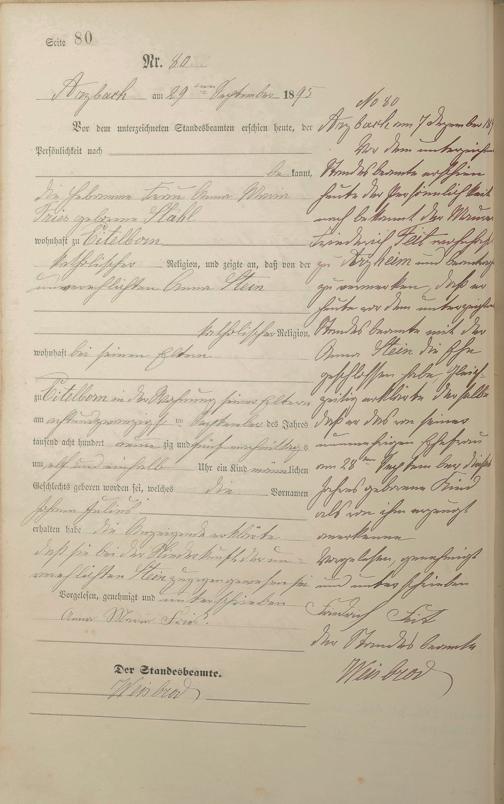 Seite 80
Nr. 80
Arzbach am 29ten September 1895
Vor dem unterzeichneten Standesbeamten erschien heute, der
Persönlichkeit nach
bekannt,
die Hebamme Frau Anna Maria
geborene Stahl
wohnhaft zu Eitelborn
katholischer Religion, und zeigte an, daß von der
unverehlichten Anna Stein
katholischer Religion,
wohnhaft bei seinen Eltern
zu Eitelborn in der Wohnung seiner Eltern
am achtundzwanzigsten September des Jahres
tausend acht hundert neunzig und fünf vormittags
um elf und einhalb Uhr ein Kind männlichen
Geschlechts geboren worden sei, welches die Vornamen
Johann Julius
erhalten habe die Anzeigende erklärte
daß sie bei der Niederkunft der un-
verehlichten Stein zugegen gewesen sei
Vorgelesen, genehmigt und unterschrieben
Anna Maria
Der Standesbeamte.
Weisbrod
No 80
Arzbach am 7 Dezember 189
Vor dem unterzeichn
Standesbeamte erschien
heute der Persönlichkeit
nach bekannt der Maurer
Friederich Feit wohnhaft
zu Arzheim und beantragt
zu vermerken, daß er
heute vor dem unterzeichn
Standesbeamte mit der
Anna Stein die Ehe
geschlossen habe Gleich-
zeitig erklärte derselbe
daß er das von seiner
nunmehrigen Ehefrau
am 28ten September dieses
Jahres geborene Kind
als von ihm erzeugt
anerkenne
Vorgelesen, genehmigt
und unterschrieben
Friedrich Feit
der Standesbeamte
Weisbrod